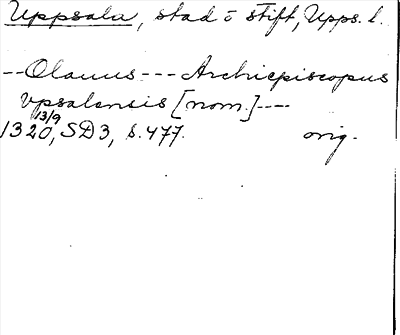 Uppsala, stad o stift, Upps. l.
--Olauus--- Archiepiscopus
vpsalensis [nom.]----
13/9
1320, SD3, s. 477. orig.